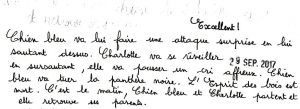 Excellent!
Chien bleu va lui faire une attaque surprise en lui
sautant dessus. Charlotte va se réveiller
29 SEP. 2017
en sursautant, elle va pousser un cri affreux. Chien
bleu va tuer la panthère noire. L'Esprit des bois est
mort. C'est le matin, Chien bleu et Charlotte partent et
elle retrouve ses parents.